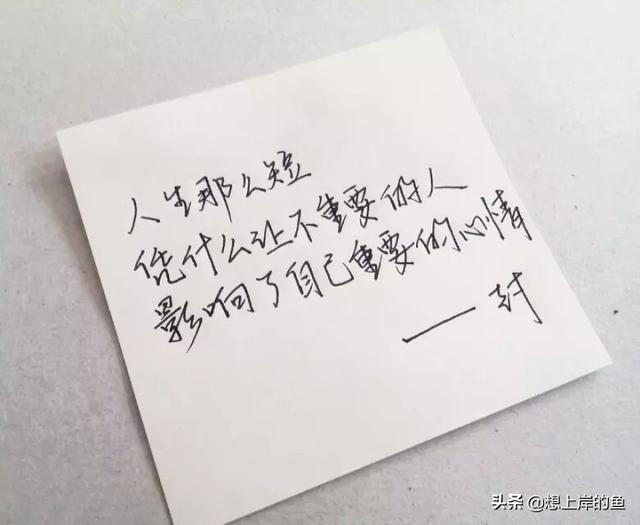 人生那么短
凭什么让不重要的人
影响了自己重要的心情
——封
头条 @想上岸的鱼